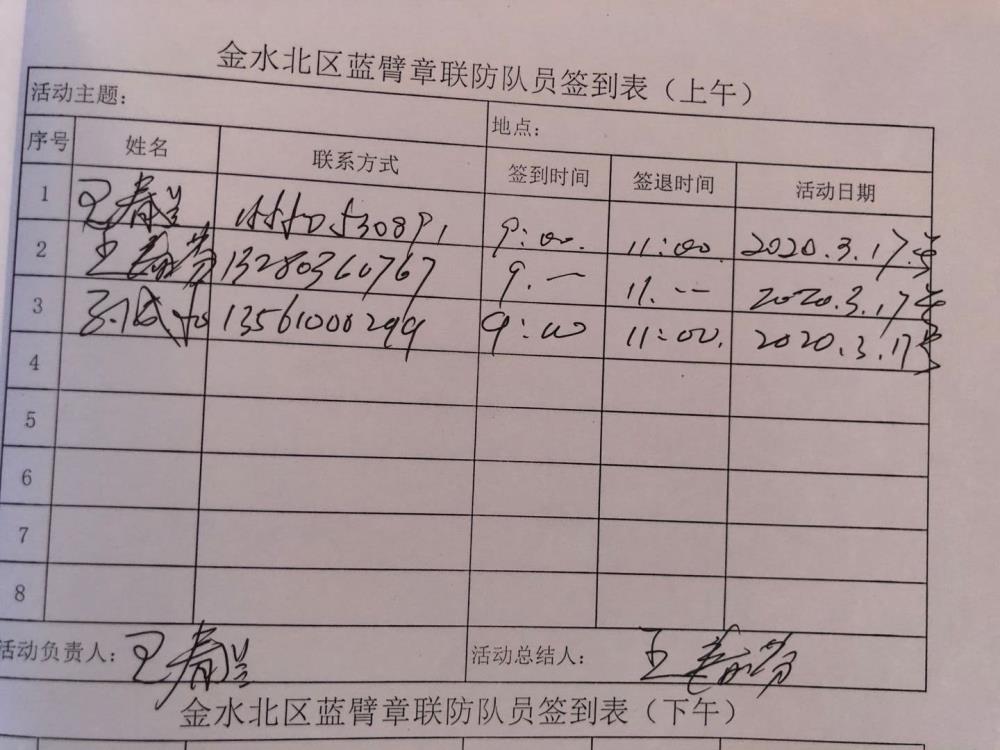 金水北区蓝臂章联防队员签到表（上午）
活动主题： 地点：
序号 姓名 联系方式 签到时间 签退时间 活动日期
1 春兰 9:00. 11:00. 2020.3.17.
2 王 13280360767 9.一 11.-- 2020.3.17
3 13561000299 9:00 11:00. 2020.3.17
4
5
6
7
8
活动负责人： 春兰 活动总结人： 王
金水北区蓝臂章联防队员签到表（下午）